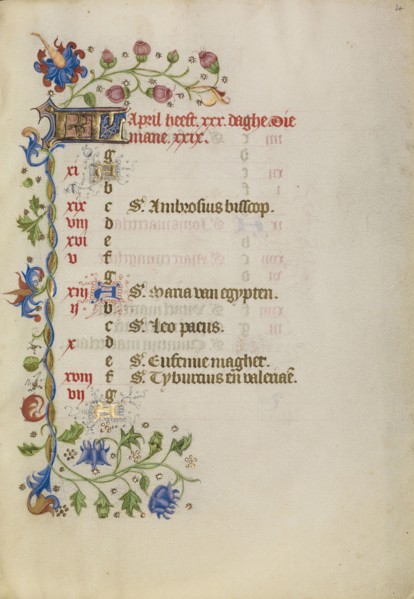 KL April heeft .xxx. daghe. Die
mane. xxix.
g
xi A
b
xix c S. Ambrosius bisscop.
viii d
xvi e
v f
g
xiii A S. Maria van egypten.
ii b
c S. Leo paeus.
x d
e S. Eufemie magher.
xviii f S. Tyburcius en valeriaē.
vii g
A